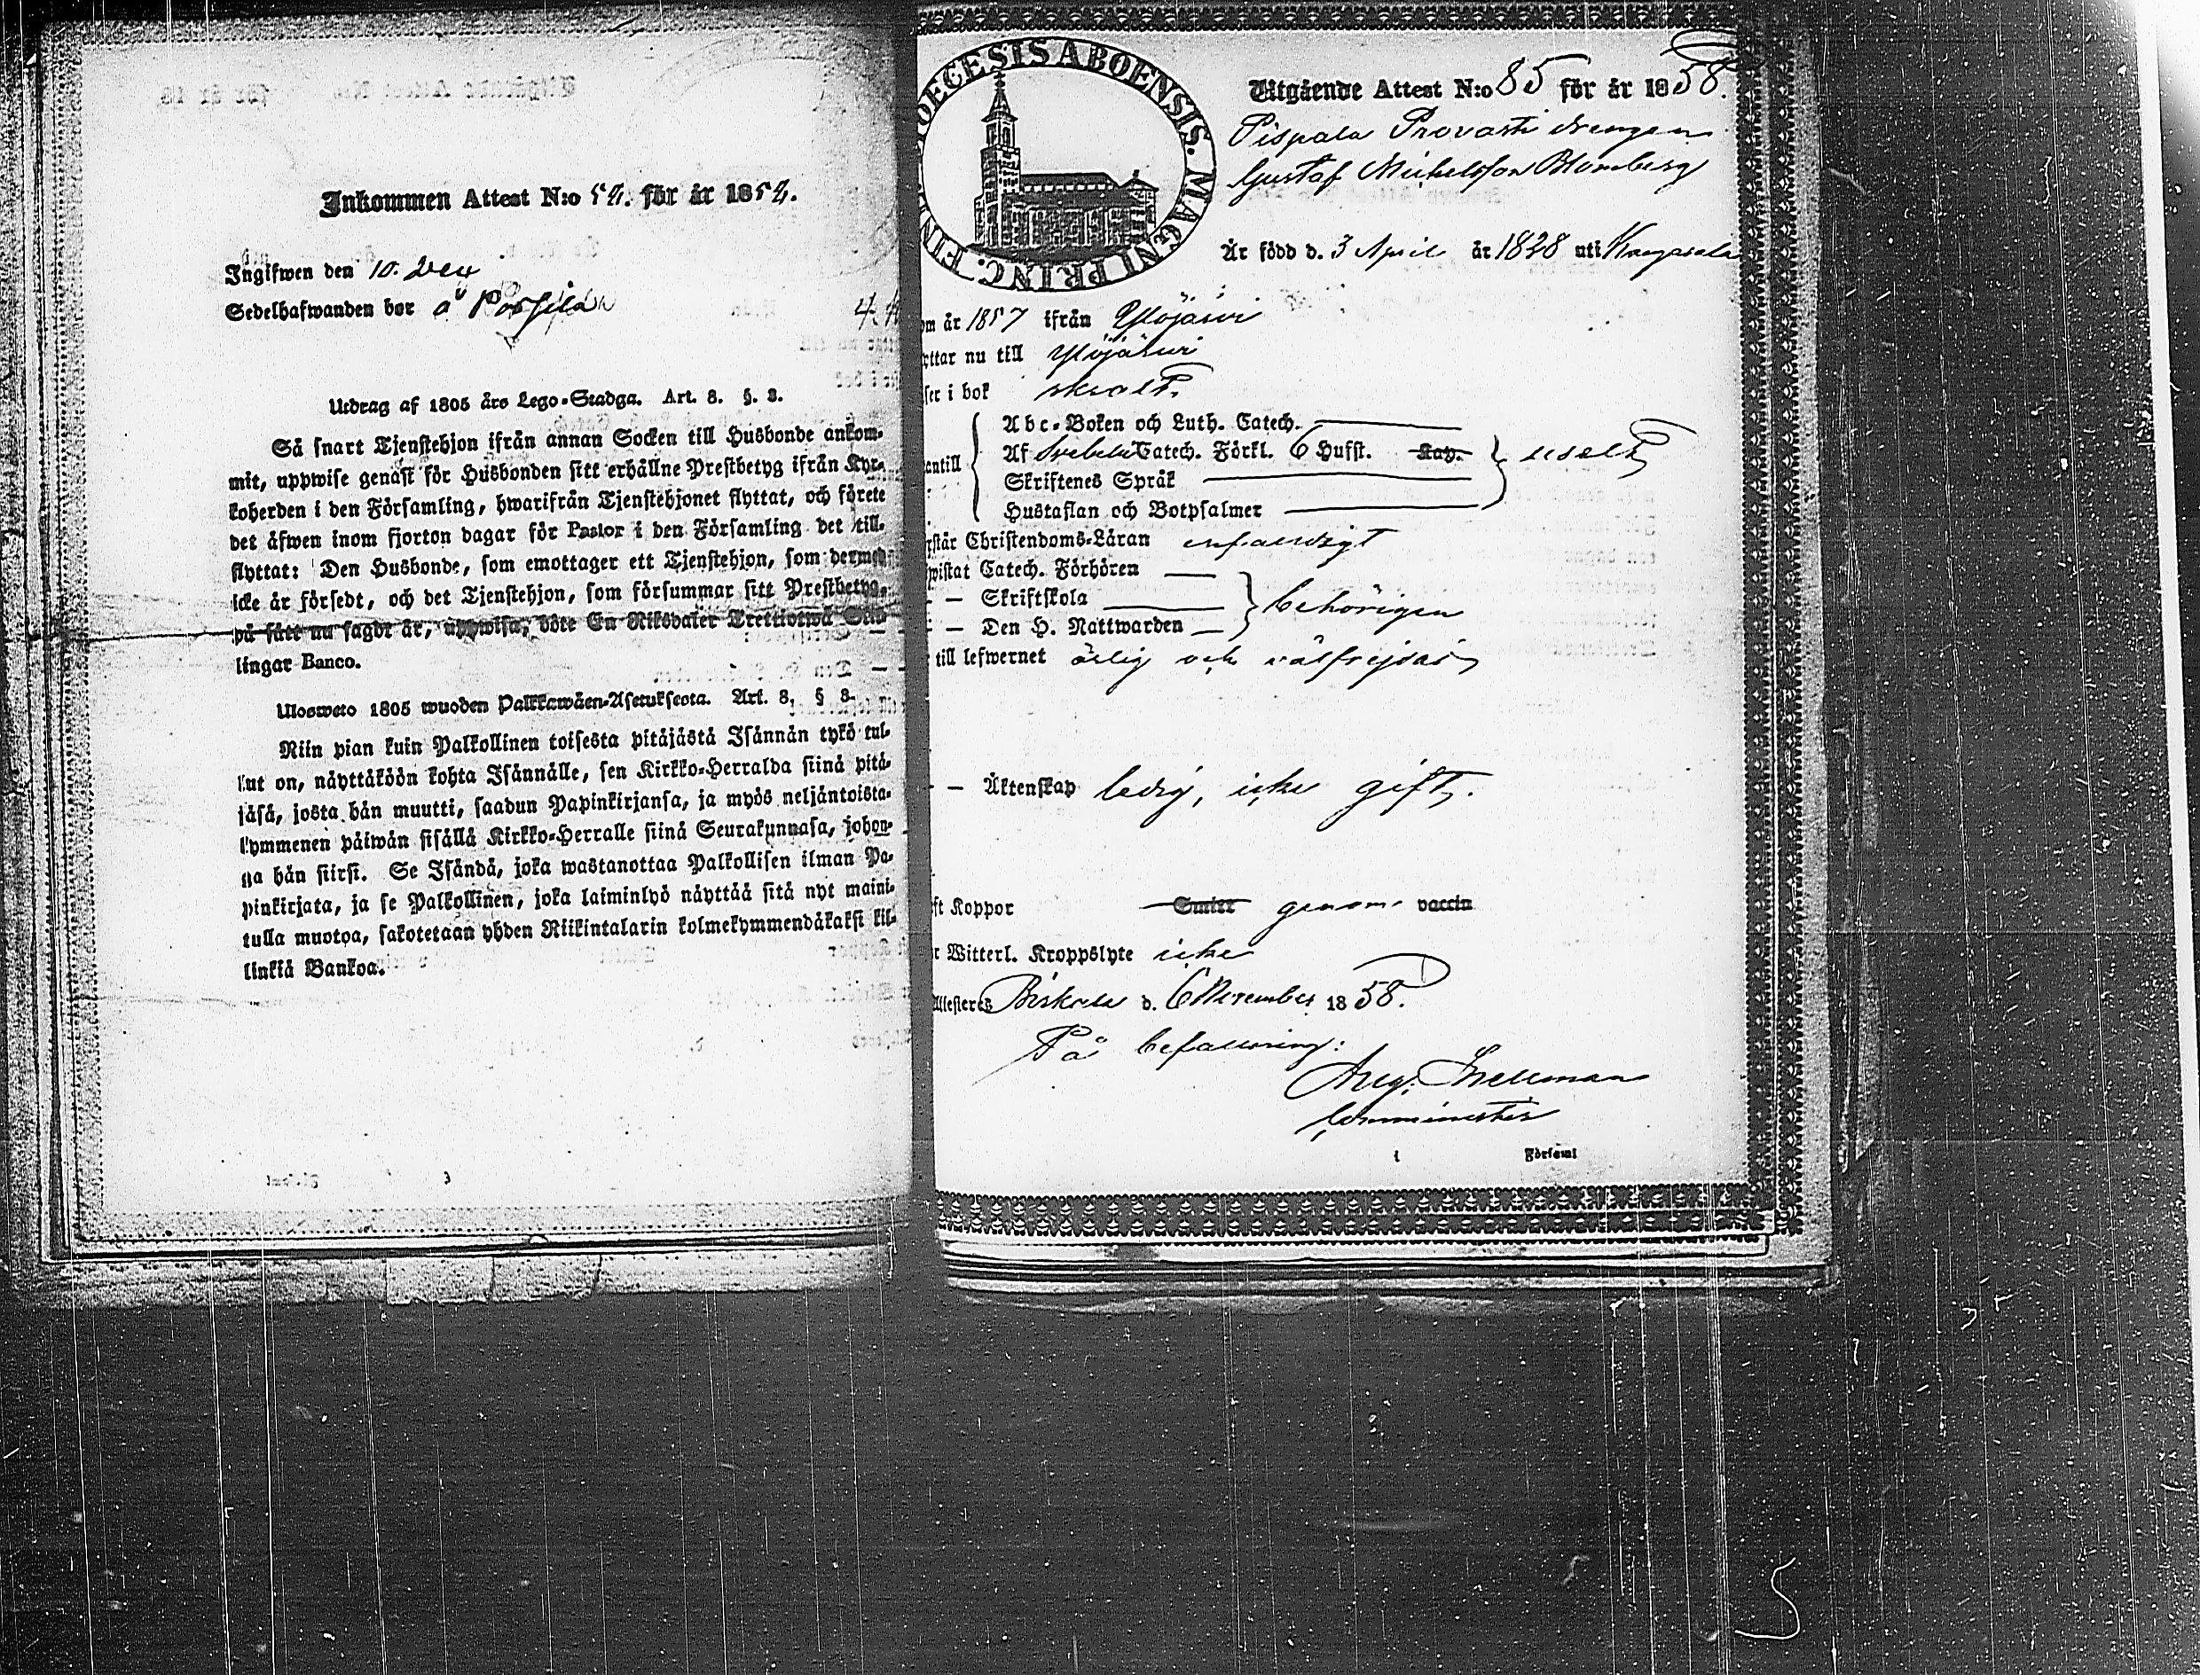 Inkommen Attest N:o 54. för år 1854.
Ingifwen den 10. Dec
Sedelhafwanden bor å
Utdrag af 1805 års Lego-Stadga. Art. 8. §. 8.
Så snart Tjenstehjon ifrån annan Socken till Husbonde ankom-
mit, uppwise genast för Husbonden sitt erhållne Prestbetyg ifrån Kyr-
koherden i den Församling, hwarifrån Tjenstehjonet flyttat, och förete
det äfwen inom fjorton dagar för Pastor i den Församling det till-
flyttat: Den Husbonde, som emottager ett Tjenstehjon, som dermed
icke är försedt, och det Tjenstehjon, som försummar sitt Prestbetyg,
på sätt nu sagdt är, uppwisa, böte En Riksdaler Trettiotwå Skil-
lingar Banco.
Ulosweto 1805 wuoden Palkkawäen-Asetuksesta. Art. 8, § 8.
Niin pian kuin Palkollinen toisesta pitäjästä Isännän tykö tul-
lut on, näyttäköön kohta Isännälle, sen Kirkko-Herralda siinä pitä-
jäsä, josta hän muutti, saadun Papinkirjansa, ja myös neljäntoista-
kymmenen päiwän sisällä Kirkko-Herralle siinä Seurakunnasa, johon-
ga hän siirsi. Se Isändä, joka wastanottaa Palkollisen ilman Pa-
pinkirjata, ja se Palkollinen, joka laiminlyö näyttää sitä nyt maini-
tulla muotoa, sakotetaan yhden Riikintalarin kolmekymmendäkaksi kil-
linkiä Bankoa.
DIOECESIS ABOENSIS. MAGNI PRINC. FINL
Utgående Attest N:o 85 för år 1858.
Pispala Provasti drengen
Gustaf Michelsson Blomberg
Är född d. 3 April år 1828 uti Kangasala
om år 1857 ifrån Ylöjärvi
yttar nu till Ylöjärvi
ser i bok svalt
Abc-Boken och Luth. Catech.
antill Af Svebelii Catech. Förkl. 6 Hufst. Kap. uselt
Skriftenes Språk
Hustaflan och Botpsalmer
rstår Christendoms-Läran enfaldigt
wistat Catech. Förhören
— Skriftskola behörigen
— Den H. Nattwarden
till lefwernet ärlig och välfrejdad
— Äktenskap ledig, icke gift.
ft Koppor Smitt genom vaccin
r Witterl. Kroppslyte icke
Attesteras Birkala d. 6 November 1858.
På befallning:
Aug. Snellman
Comminister
i Församl